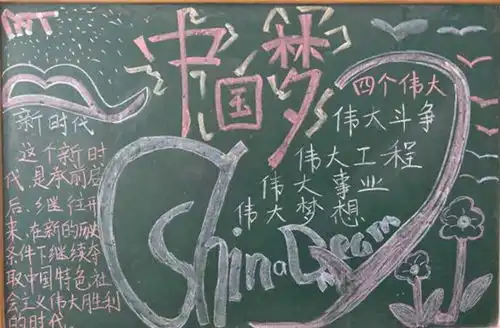 中国梦
新时代
这个新时
代,是承前启
后、继往开
来、在新的历史
条件下继续夺
取中国特色社
会主义伟大胜利
的时代.
四个伟大
伟大斗争
伟大工程
伟大事业
伟大梦想
China Dream